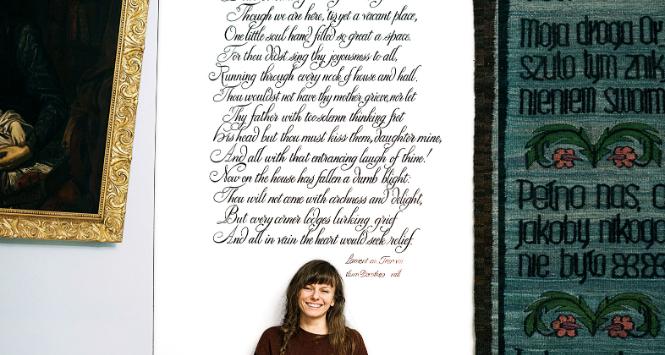 Though we are here, tis yet a vacant place,
One little soul hand filled so great a space.
For thou didst sing thy joyousness to all,
Running through every nook of house and hall.
Thou wouldst not have thy mother grieve, nor let
Thy father with too solemn thinking fret
His head but thou must kiss them, daughter mine,
And all with that entrancing laugh of thine!
Now on the house has fallen a dumb blight:
Thou wilt not come with archness and delight,
But every corner lodges lurking grief
And all in vain the heart would seek relief.
Lament
Moja droga Or
szulo tym znik
nieniem swoim
Pełno nas, a
jakoby nikogo
nie było